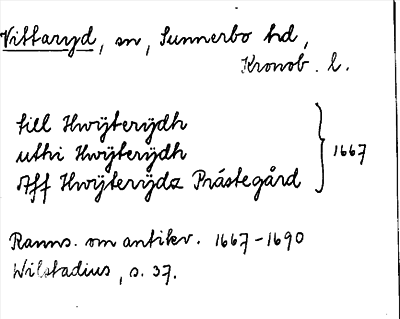 Vittaryd, sn, Sunnerbo hd,
Kronob. l.
till Hwÿterÿdh
uthi Hwÿterÿdh
Aff Hwÿterÿdz Prästegård } 1667
Ranns. om antikv. 1667-1690
Wilstadius, s. 37.